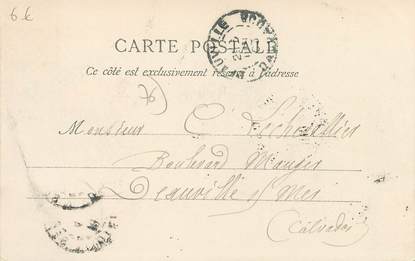 6 €
CARTE POSTALE
Ce côté est exclusivement réservé à l'adresse
76)
Monsieur C Lechevallier
Boulevard Mauger
Deauville s/ Mer
(Calvados)